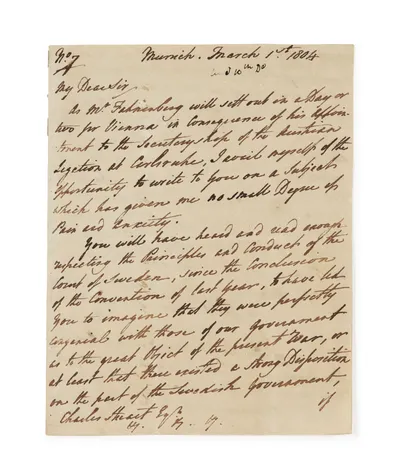 No. 7
Munich. March 1.st 1804
My Dear Sir
As Mr. Fahnenberg will sett out in a Day or
two for Vienna in consequence of his Appoint
tment to the Secretaryship of the Austrian
Legation at Carlsruhe, I avail myself of the
Opportunity to write to You on a Subject
which has given me no small Degree of
Pain and Anxiety.
You will have heard and read enough
respecting the Principles and Conduct of the
Court of Sweden, since the Conclusion
of the Convention of last Year, to have led
You to imagine that they were perfectly
congenial with those of our Government
as to the great Object of the present War, or
at least that there existed a strong Disposition
on the part of the Swedish Government,
if
Charles Stuart Esqr.